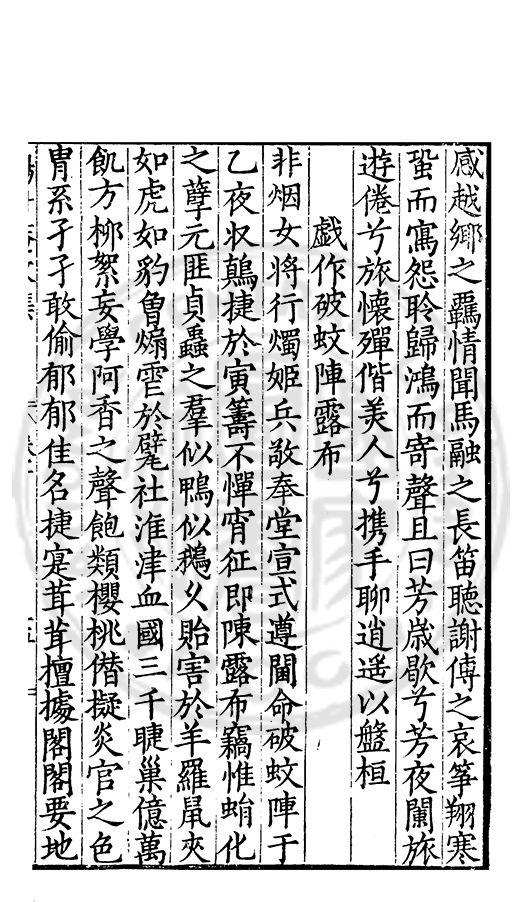 感越鄉之羈情聞馬融之長笛聽謝傅之哀箏翔寒
蛩而寫怨聆歸鴻而寄聲且曰芳歲歇兮芳夜闌旅
遊倦兮旅懷殫偕美人兮携手聊逍遥以盤桓
戲作破蚊陣露布
非烟女將行燭姬兵敬奉堂宣式遵閫命破蚊陣于
乙夜収鷯捷於寅籌不憚宵征即陳露布竊惟蛕化
之孽元匪貞蟲之羣似鴨似鵝夂貽害於羊羅鼠夾
如虎如豹曾煽雹於甓社淮津血國三千睫巢億萬
飢方柳絮妄學阿香之聲飽類櫻桃僭擬炎官之色
冑系孑孑敢偷郁郁佳名捷寔茸茸檀據閣閣要地